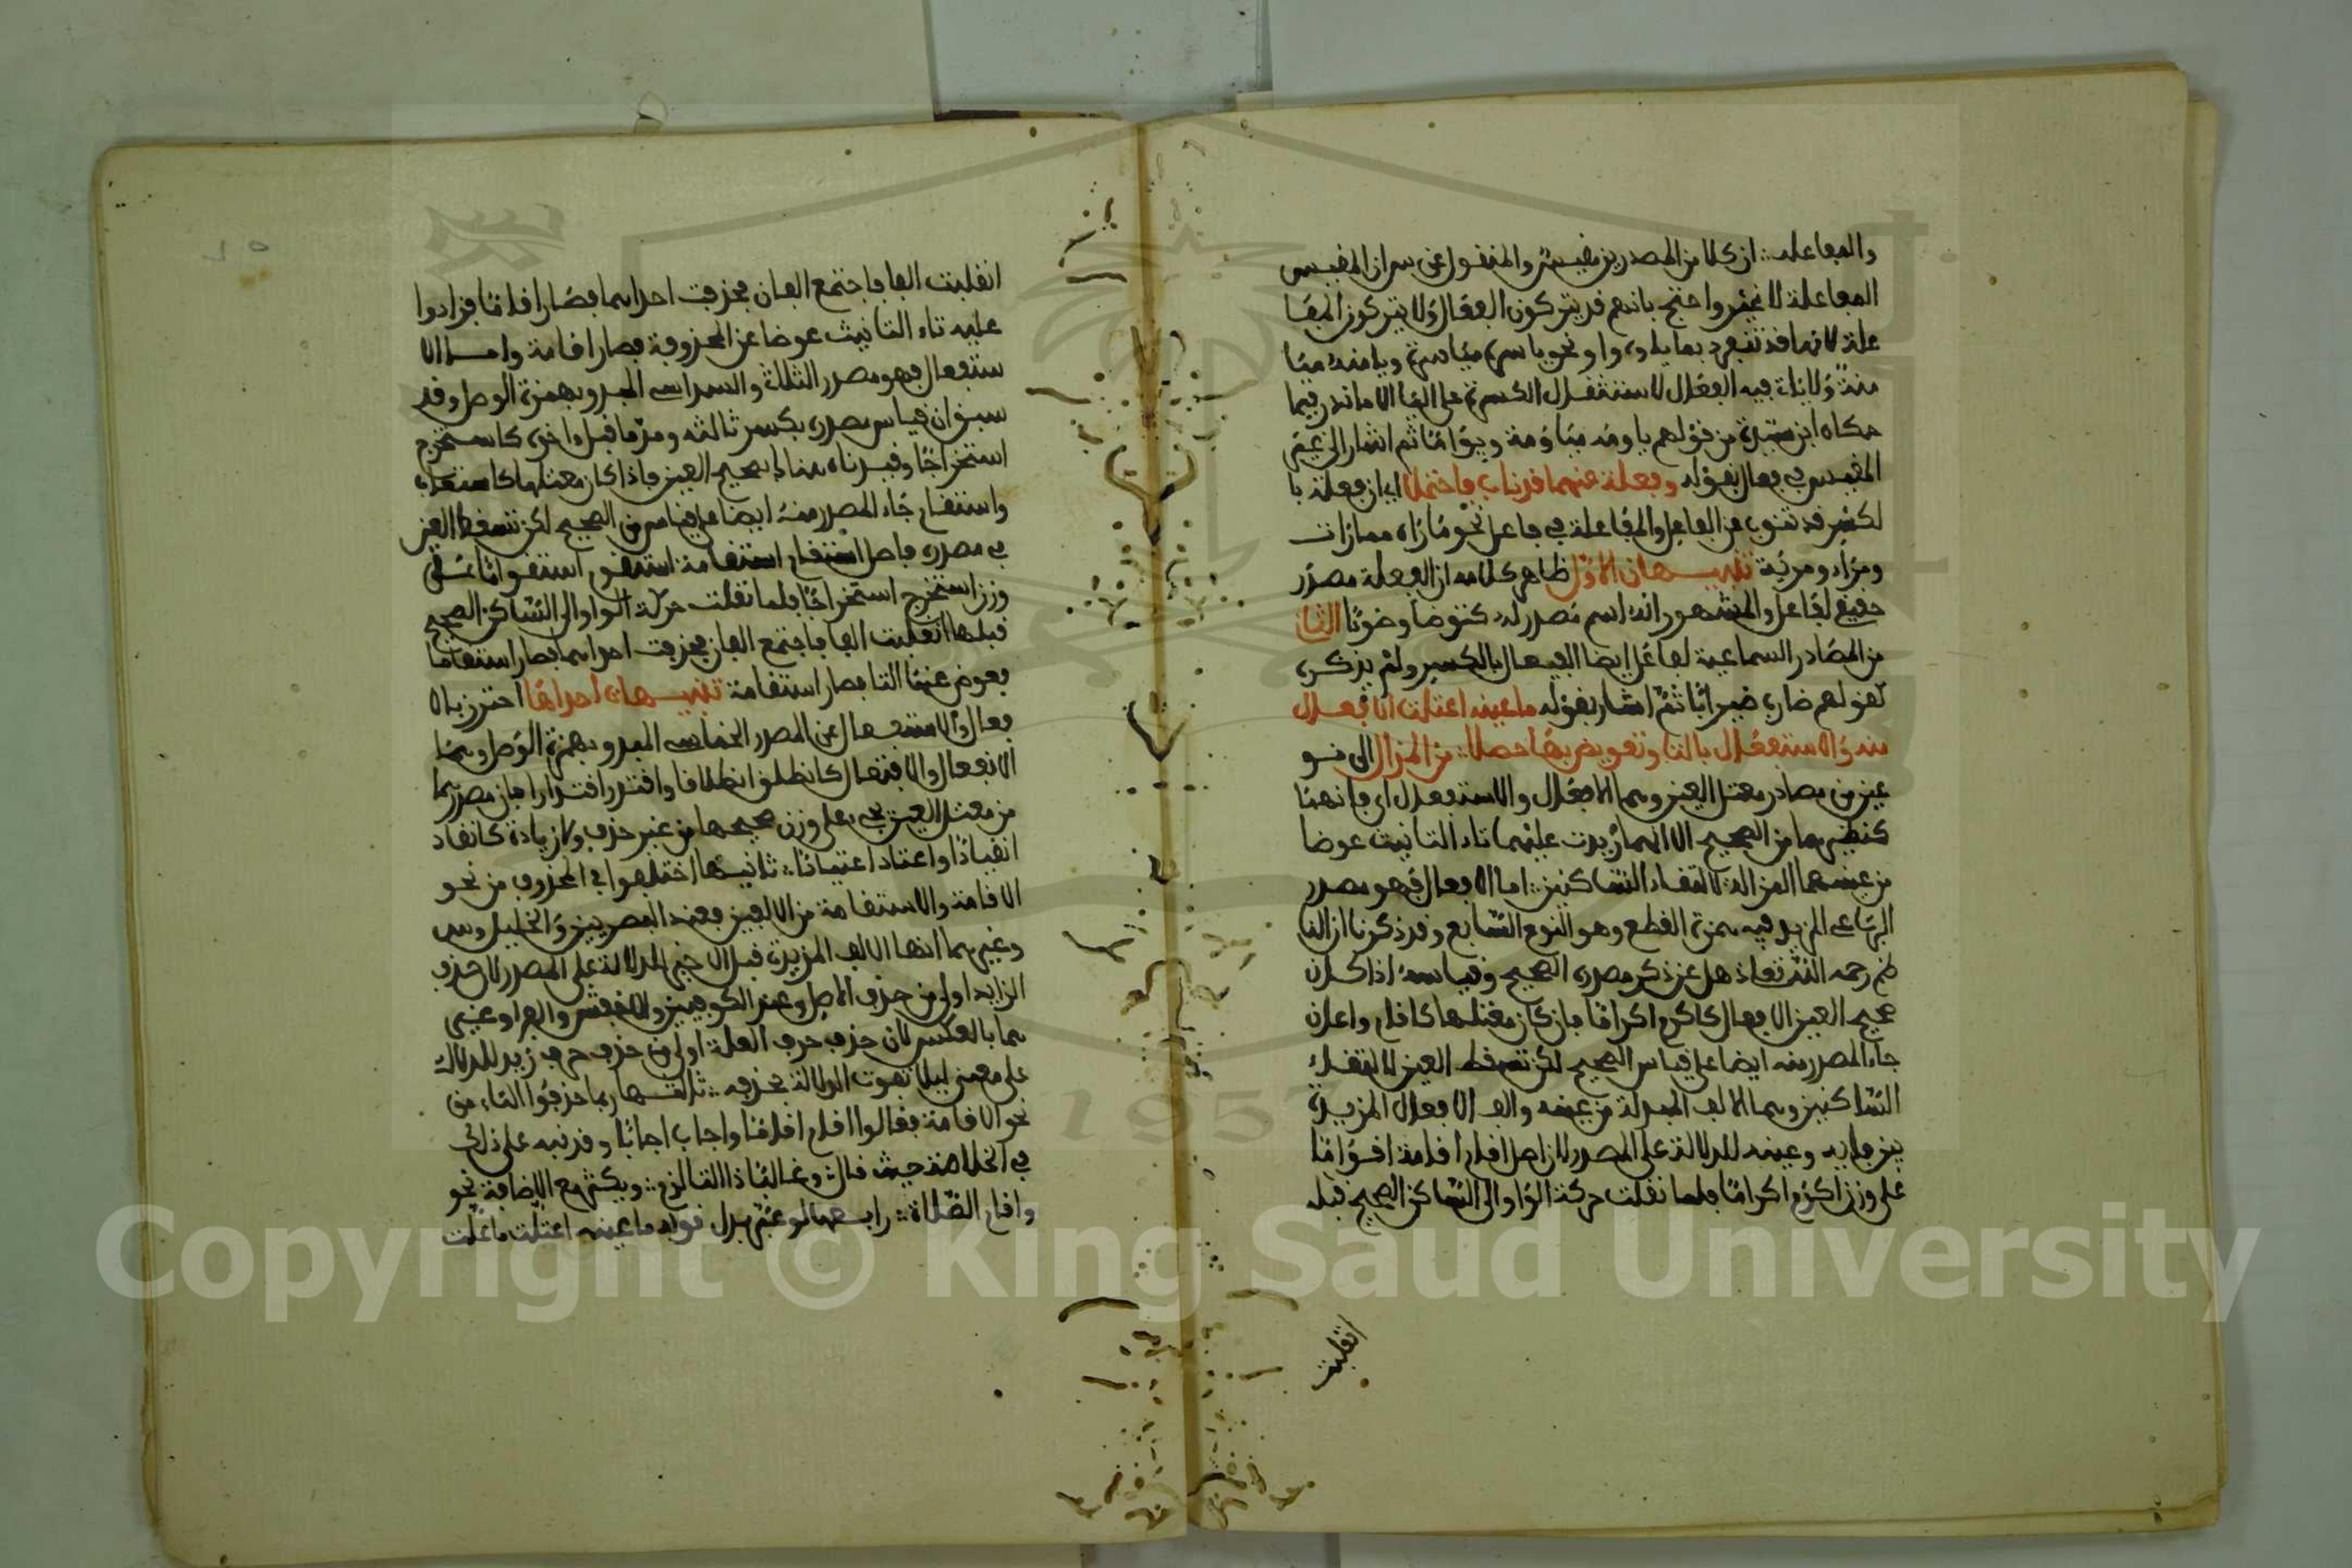 والمفاعله ان كلا من المصدرين مقيس والمنقول عن س ان المقيس
المفاعلة لا غير واحتج بانهم قد يتركون الفعال ولا يتركون المفا
علة لانها قد تنفرد بما يلوه واو نحو ياسره مياسرة ويامنه ميا
منة ولا يات فيه الفعال لاستثقال الكسرة على اليا الا ما ندر فيما
حكاه ابن سيده من قولهم ياومه مياومة ويواما ثم اشار الى غير
المقيس في فعال بقوله وفعلة عنهما قد ناب فاحتملا اي ان فعلة با
لكسر قد تنوب عن الفاعل والمفاعلة في فاعل نحو ماراه ممارات
ومراء ومرية تنبيهان الاول ظاهر كلامه ان الفعلة مصدر
حقيقي لفاعل والمشهور انه اسم مصدر له كتوضا وضوءا الثان
من المصادر السماعية لفاعل ايضا الفيعال بالكسر ولم يذكره
كقولهم ضارب ضيرابا ثم اشار بقوله ما عينه اعتلت الافعال
منه والاستفعال بالتا وتعويض بها حصلا من المزال الى نو
عين من مصادر معتل العين وهما الافعال والاستفعال اي فانهما
كنظيرهما من الصحيح الا انهما زيدت عليهما تاء التانيث عوضا
من عينهما المزالة لالتقاء الساكنين اما الافعال فهو مصدر
الرباعي المزيد فيه همزة القطع وهو النوع السابع وقد ذكرنا ان النا
ظم رحمه الله تعا ذهل عن ذكر مصدره الصحيح وقياسه اذا كان
صحيح العين الافعال كاكرم اكراما فان كان معتلها كاقام واعان
جاء المصدر منه ايضا على قياس الصحيح لكن تسقط العين لالتقاء
الساكنين وهما الالف المبدلة من عينه والف الافعال المزيدة
بين فايه وعينه للدلالة على المصدر لان اصل اقام اقامة اقواما
على وزن اكرم اكراما فلما نقلت حركة الواو الى الساكن الصحيح قبله
انقلبت
انقلبت الفا فاجتمع الفان فحذفت احداهما فصار اقاما فزادوا
عليه تاء التانيث عوضا عن المحذوفة فصار اقامة واما الا
ستفعال فهو مصدر الثلاثي والسداسي المبدو بهمزة الوصل وقد
سبق ان قياس مصدره بكسر ثالثه ومد ما قبل اخره كاستخرج
استخراجا وقيدناه هنالك بصحيح العين فاذا كان معتلها كاستعان
واستقام جاء المصدر منه ايضا على قياس من الصحيح لكن تسقط العين
في مصدره فاصل استقام استقامة استقوم استقواما على
وزن استخرج استخراجا فلما نقلت حركة الواو الى الساكن الصحيح
قبلها انقلبت الفا فاجتمع الفان فحذفت احداهما فصار استقاما
فعوض عنها التا فصار استقامة تنبيهات احداها احترز بالا
فعال والاستفعال عن المصدر الخماسي المبدو بهمزة الوصل وهما
الانفعال والافتعال كانطلق انطلاقا واقتدر اقتدارا فان مصدرهما
من معتل العين يجيء على وزن صحيحها من غير حذف ولا زيادة كانقاد
انقيادا واعتاد اعتيادا ثانيها اختلفوا في المحذوف من نحو
الاقامة والاستقامة من الالفين فعند البصريين والخليل وس
وغيرهما انها الالف المزيدة قبل الاخير للدلالة على المصدر لان حذف
الزايد اولى من حذف الاصل وعند الكوفيين والاخفش والفرا وغير
هما بالعكس لان حذف حرف العلة اولى من حذف حرف زيد للدلالة
على معنى ليلا تفوت الدلالة بحذفه ثالثها ربما حذفوا التاء من
نحو الاقامة فقالوا اقام اقاما واجاب اجابا وقد نبه على ذلك
في الخلاصة حيث قال وغالبا ذا التا لزم ويكثر مع الاضافة نحو
واقام الصلاة رابعها لو عبر بدل قوله ما عينه اعتلت ما اعلت